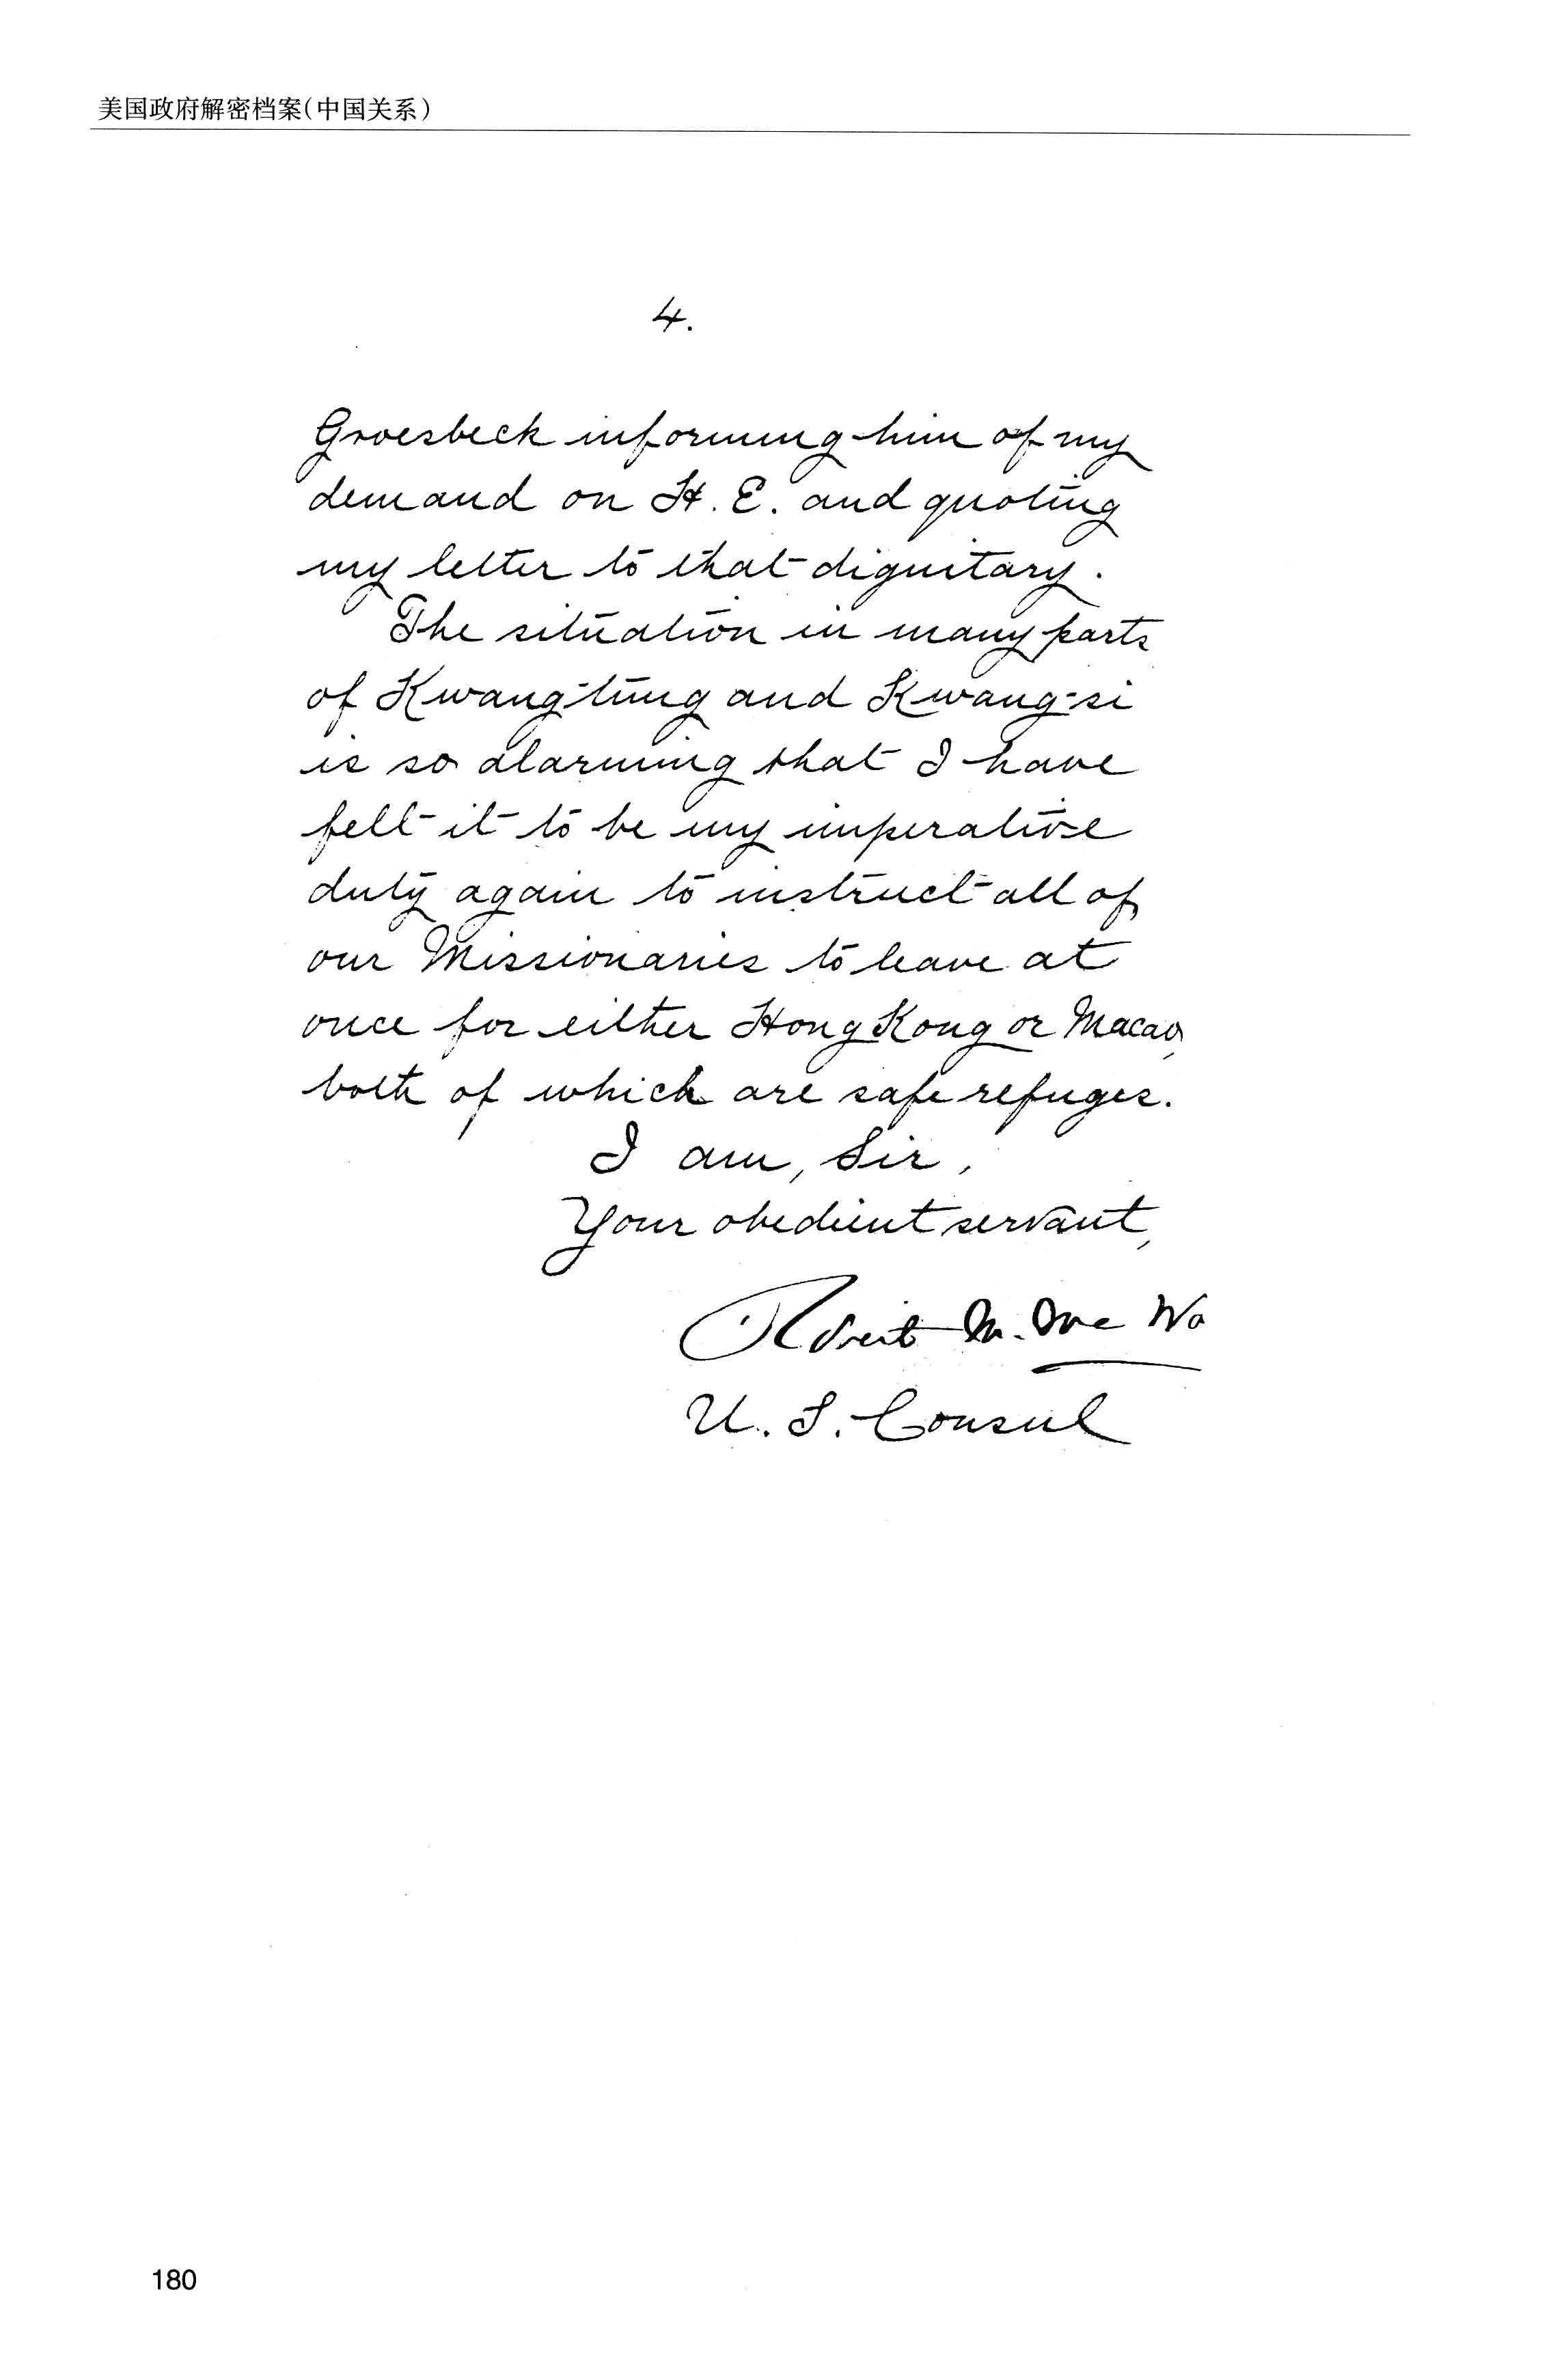 美国政府解密档案(中国关系)
4.
Groesbeck informing him of my
demand on H. E. and quoting
my letter to that dignitary.
The situation in many parts
of Kwang-tung and Kwang-si
is so alarming that I have
felt it to be my imperative
duty again to instruct all of
our Missionaries to leave at
once for either Hong Kong or Macao,
both of which are safe refuges.
I am, Sir,
Your obedient servant,
Robert M. Mc Wa
U. S. Consul
180